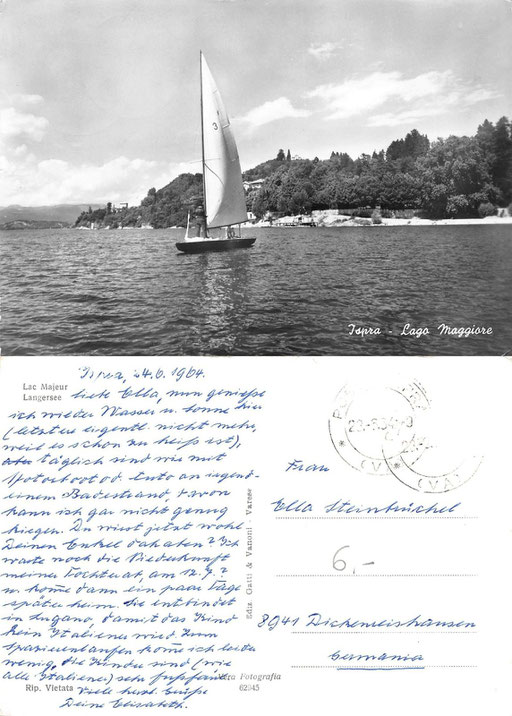 3
Ispra - Lago Maggiore
Lac Majeur
Langersee
Ispra, 4.6.1964.
liebe Ella, nun genieße
ich wieder Wasser u. Sonne hier
(letztere eigentl. nicht mehr,
weil es schon zu heiß ist),
aber täglich sind wir mit
Motorboot od. Auto an irgend-
einem Badestrand, davon
kann ich gar nicht genug
kriegen. Du wirst jetzt wohl
Deinen Enkel da haben? Ich
warte noch die Niederkunft
meiner Tochter ab, am 12.7.?
u. komme dann ein paar Tage
später heim. Sie entbindet
in Lugano, damit das Kind
kein Italiener wird. Zum
Spazierenlaufen komme ich leider
wenig, die Kinder sind (wie
alle Italiener) sehr
Viele herzl. Grüße
Deine Elisabeth.
Rip. Vietata
Vera Fotografia
62945
Ediz. Gatti & Vanoni - Varese
(VA)
Frau
Ella Steinbrüchel
6,-
8941 Dickenreishausen
Germania